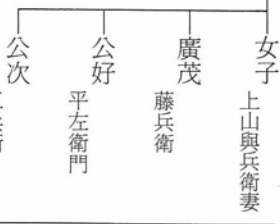 女子
上山與兵衞妻
廣茂
藤兵衞
公好
平左衞門
公次